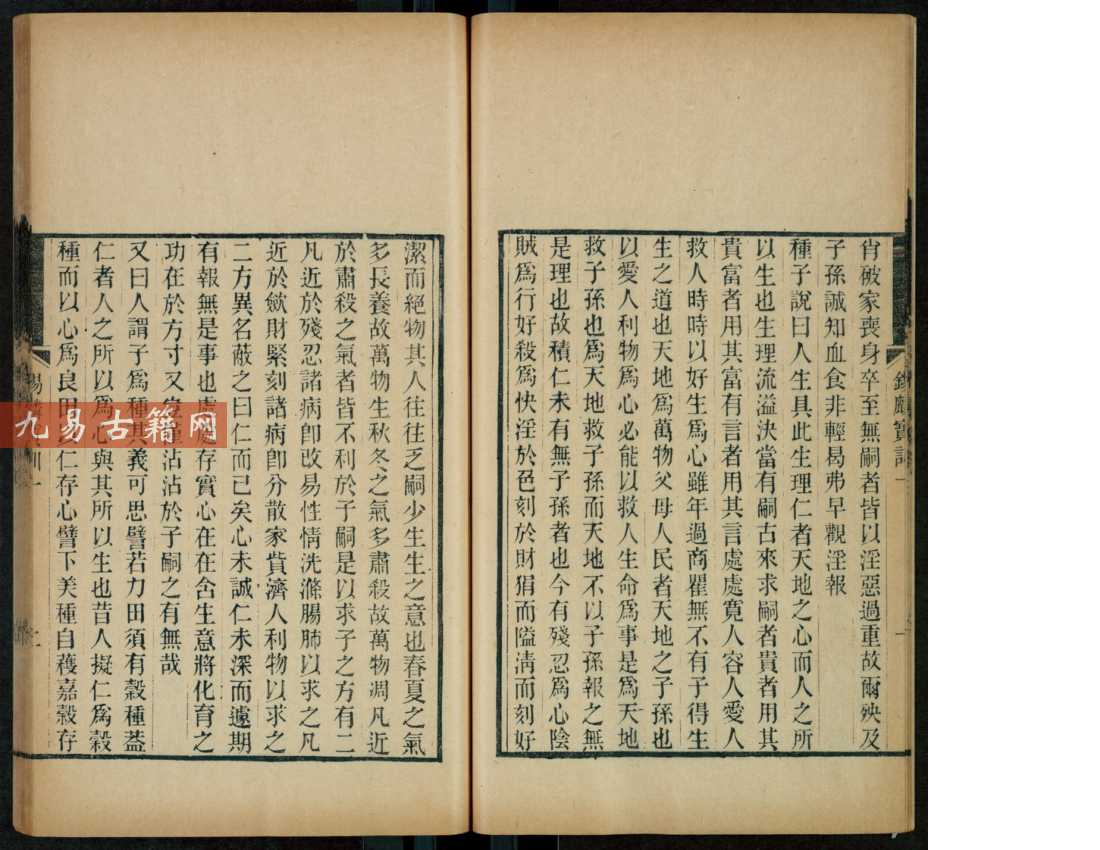 肯破家喪身卒至無嗣者皆以淫惡過重故爾殃及
子孫誠知血食非輕曷弗早觀淫報
種子說曰人生具此生理仁者天地之心而人之所
以生也生理流溢決當有嗣古來求嗣者貴者用其
貴富者用其富有言者用其言處處寛人容人愛人
救人時時以好生爲心雖年過商瞿無不有子得生
生之道也天地爲萬物父母人民者天地之子孫也
以愛人利物爲心必能以救人生命爲事是爲天地
救子孫也爲天地救子孫而天地不以子孫報之無
是理也故積仁未有無子孫者也今有殘忍爲心陰
賊爲行好殺爲快淫於色刻於財狷而隘淸而刻好
潔而絕物其人往往乏嗣少生生之意也春夏之氣
多長養故萬物生秋冬之氣多肅殺故萬物凋凡近
於肅殺之氣者皆不利於子嗣是以求子之方有二
凡近於殘忍諸病卽改易性情洗滌腸肺以求之凡
近於斂財緊刻諸病卽分散家貲濟人利物以求之
二方異名蔽之曰仁而已矣心未誠仁未深而遽期
有報無是事也處處存實心在在含生意將化育之
功在於方寸又豈僅沾沾於子嗣之有無哉
又曰人謂子爲種其義可思譬若力田須有穀種葢
仁者人之所以爲心與其所以生也昔人擬仁爲穀
種而以心爲良田以仁存心譬下美種自穫嘉穀存
九易古籍网